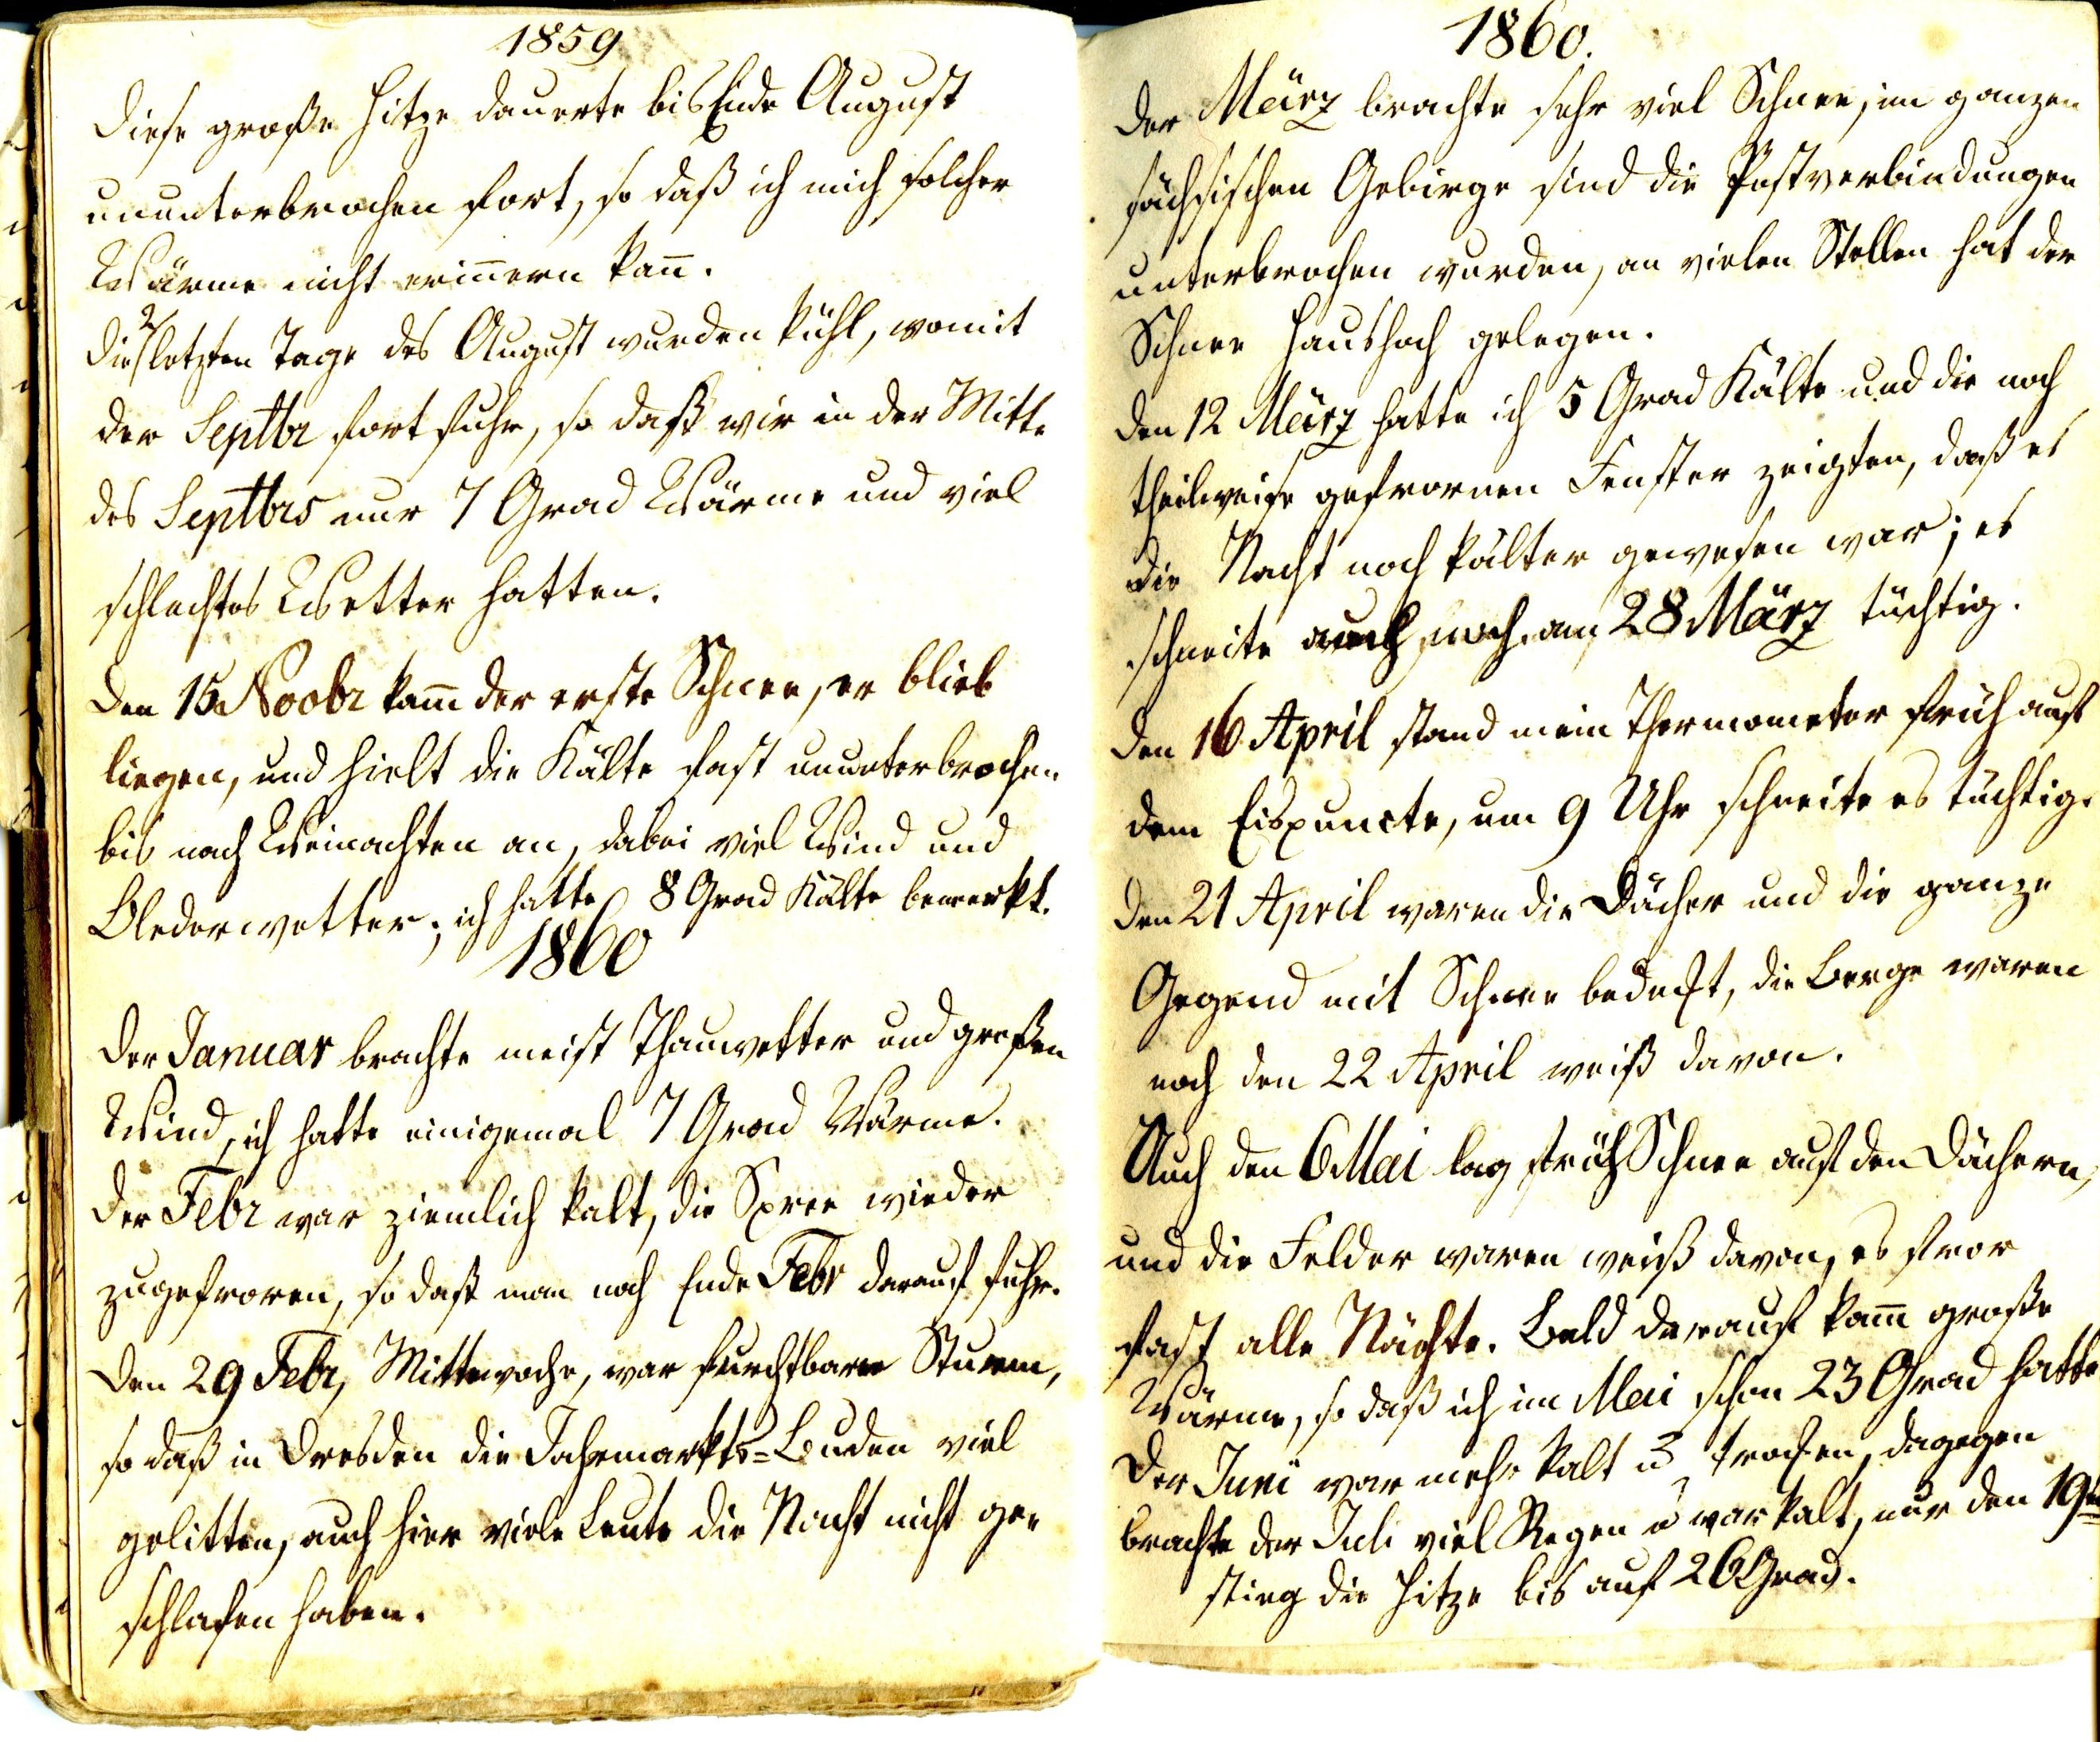 1859
Diese große Hitze dauerte bis Ende August
ununterbrochen fort, so daß ich mich solcher
Wärme nicht erin̄ern kan̄.
Die 2 letzten Tage des August wurden kühl, womit
der Septbr fortfuhr, so daß wir in der Mitte
des Septbrs nur 7 Grad Wärme und viel
schlechtes Wetter hatten.
Den 15. Novbr kam̄ der erste Schnee, er blieb
liegen, und hielt die Kälte fast ununterbrochen
bis nach Weinachten an, dabei viel Wind und
; ich hatte 8 Grad Kälte bemerkt.
1860
Der Januar brachte meist Thauwetter und großen
Wind, ich hatte einigemal 7 Grad Wärme.
Der Febr war ziemlich kalt, die Spree wieder
zugefroren, so daß man noch Ende Febr darauf fuhr.
Den 29 Febr, Mittwoche, war furchtbarer Sturm,
so daß in Dresden die Jahrmarkts=Buden viel
gelitten, auch hier viele Leute die Nacht nicht ge=
schlafen haben.
1860.
Der März brachte sehr viel Schnee, im ganzen
sächsischen Gebirge sind die Postverbindungen
unterbrochen wurden, an vielen Stellen hat der
Schnee Haushoch gelegen.
Den 12 März hatte ich 5 Grad Kälte und die noch
theilweise gefrornen Fenster zeigten, daß es
die Nacht noch kälter gewesen war; es
schneite auch noch am 28 März tüchtig.
Den 16 April stand mein Thermometer früh auf
dem Eispuncte, um 9 Uhr schneite es tüchtig.
Den 21 April waren die Dächer und die ganze
Gegend mit Schnee bedeckt, die Berge waren
noch den 22 April weiß davon.
Auch den 6 Mai lag früh Schnee auf den Dächern,
und die Felder waren weiß davon, es fror
fast alle Nächte. Bald darauf kam̄ große
Wärme, so daß ich im Mai schon 23 Grad hatte
Der Juni war mehr kalt u trocken, dagegen
brachte der Juli viel Regen u war kalt, nur den 19ten
stieg die Hitze bis auf 26 Grad.